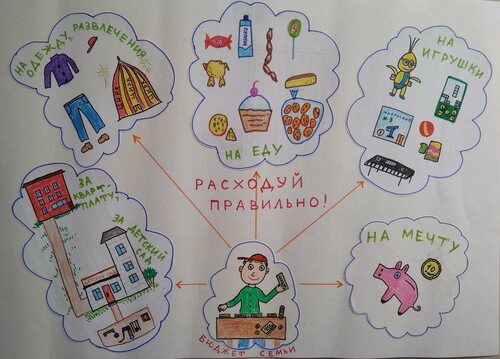 НА ОДЕЖДУ, РАЗВЛЕЧЕНИЯ
ЦИРК
МОЛОКО
НА ЕДУ
НА
ИГРУШКИ
РАСХОДУЙ
ПРАВИЛЬНО!
ЗА
КВАРТ-
ПЛАТУ,
ЗА ДЕТСКИЙ
САД
НА МЕЧТУ
БЮДЖЕТ СЕМЬИ